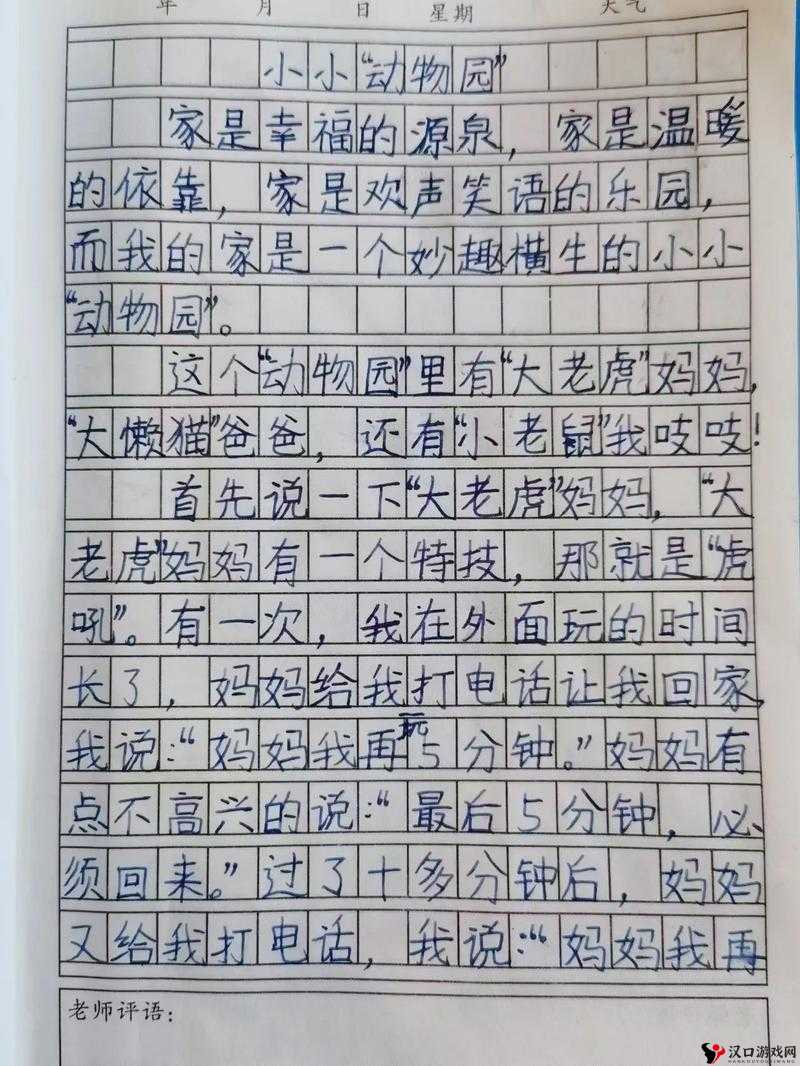 年 月 日 星期 天气
小小“动物园”
家是幸福的源泉，家是温暖
的依靠，家是欢声笑语的乐园，
而我的家是一个妙趣横生的小小
“动物园”。
这个“动物园”里有“大老虎”妈妈，
“大懒猫”爸爸，还有“小老鼠”我吱吱！
首先说一下“大老虎”妈妈，“大
老虎”妈妈有一个特技，那就是“虎
吼”。有一次，我在外面玩的时间
长了，妈妈给我打电话让我回家，
我说：“妈妈我再玩5分钟。”妈妈有
点不高兴的说：“最后5分钟，必
须回来。”过了十多分钟后，妈妈
又给我打电话，我说：“妈妈我再
老师评语：
汉口游戏网
HANKOUYOUXIWANG